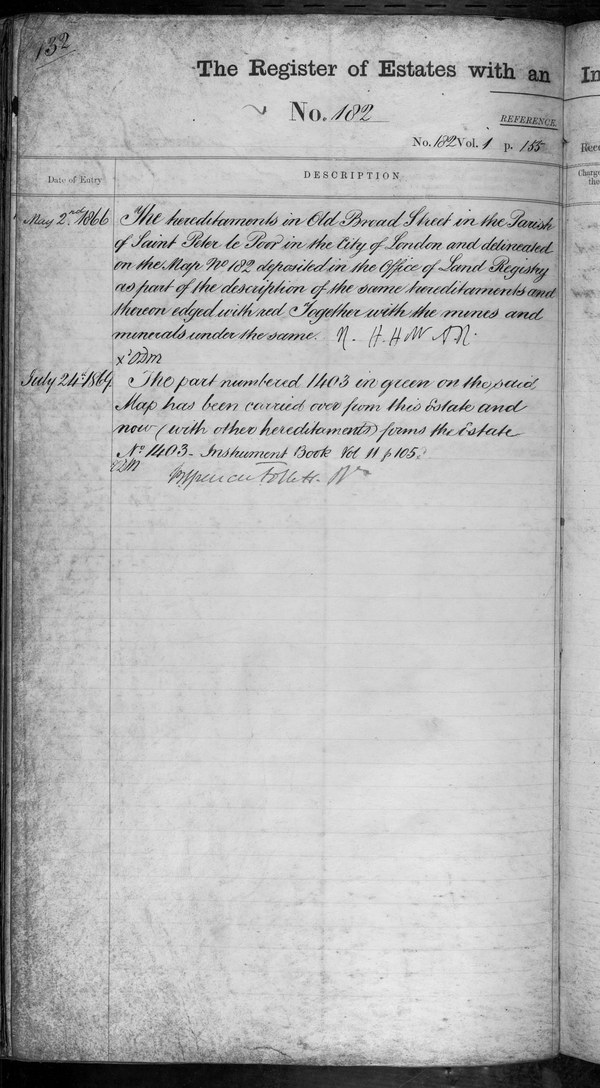 132
The Register of Estates with an
In
No. 182
REFERENCE.
No. 182 Vol. 1 p. 155
Date of Entry
DESCRIPTION
May 2nd 1866 The hereditaments in Old Broad Street in the Parish
of Saint Peter le Poor in the City of London and delineated
on the Map No 182 deposited in the Office of Land Registry
as part of the description of the same hereditaments and
thereon edged with red, Together with the mines and
minerals under the same.
July 24th The part numbered 1403 in green on the said
Map has been carried over from this Estate and
now (with other hereditaments) forms the Estate
No 1403 - Instrument Book Vol 11 p 105